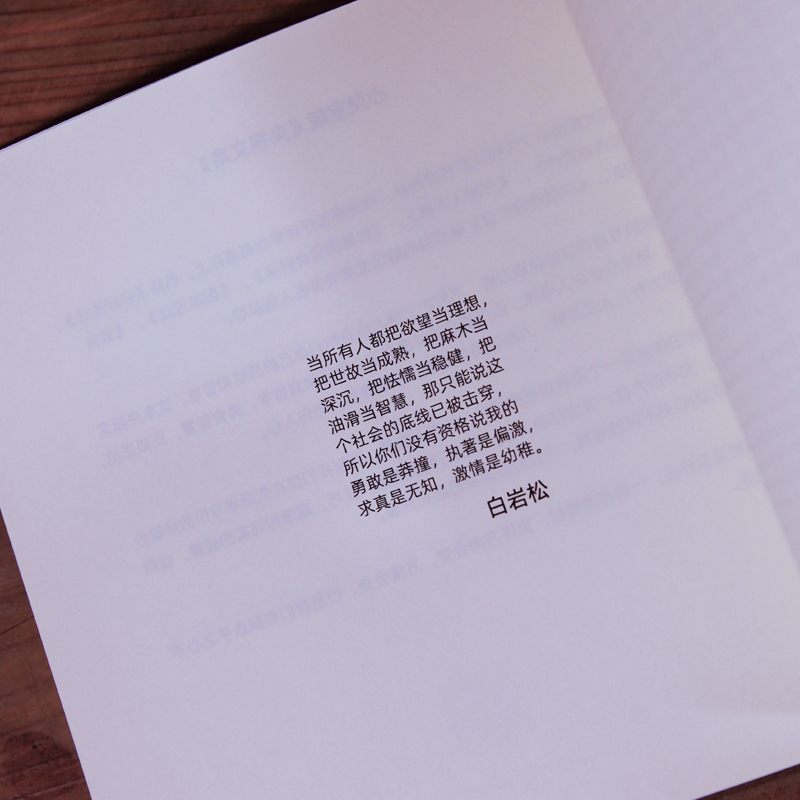 当所有人都把欲望当理想，
把世故当成熟，把麻木当
深沉，把怯懦当稳健，把
油滑当智慧，那只能说这
个社会的底线已被击穿，
所以你们没有资格说我的
勇敢是莽撞，执著是偏激，
求真是无知，激情是幼稚。
白岩松